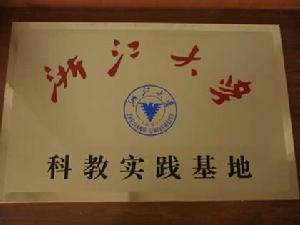 浙江大学
浙江大学
ZHEJIANG UNIVERSITY
科教实践基地